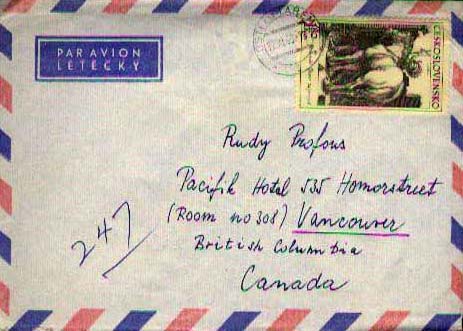 PAR AVION
LETECKY
ČESKOSLOVENSKO
Rudy Profous
Pacifik Hotel 535 Homorstreet
(Room no 308) Vancouver
British Columbia
Canada
247